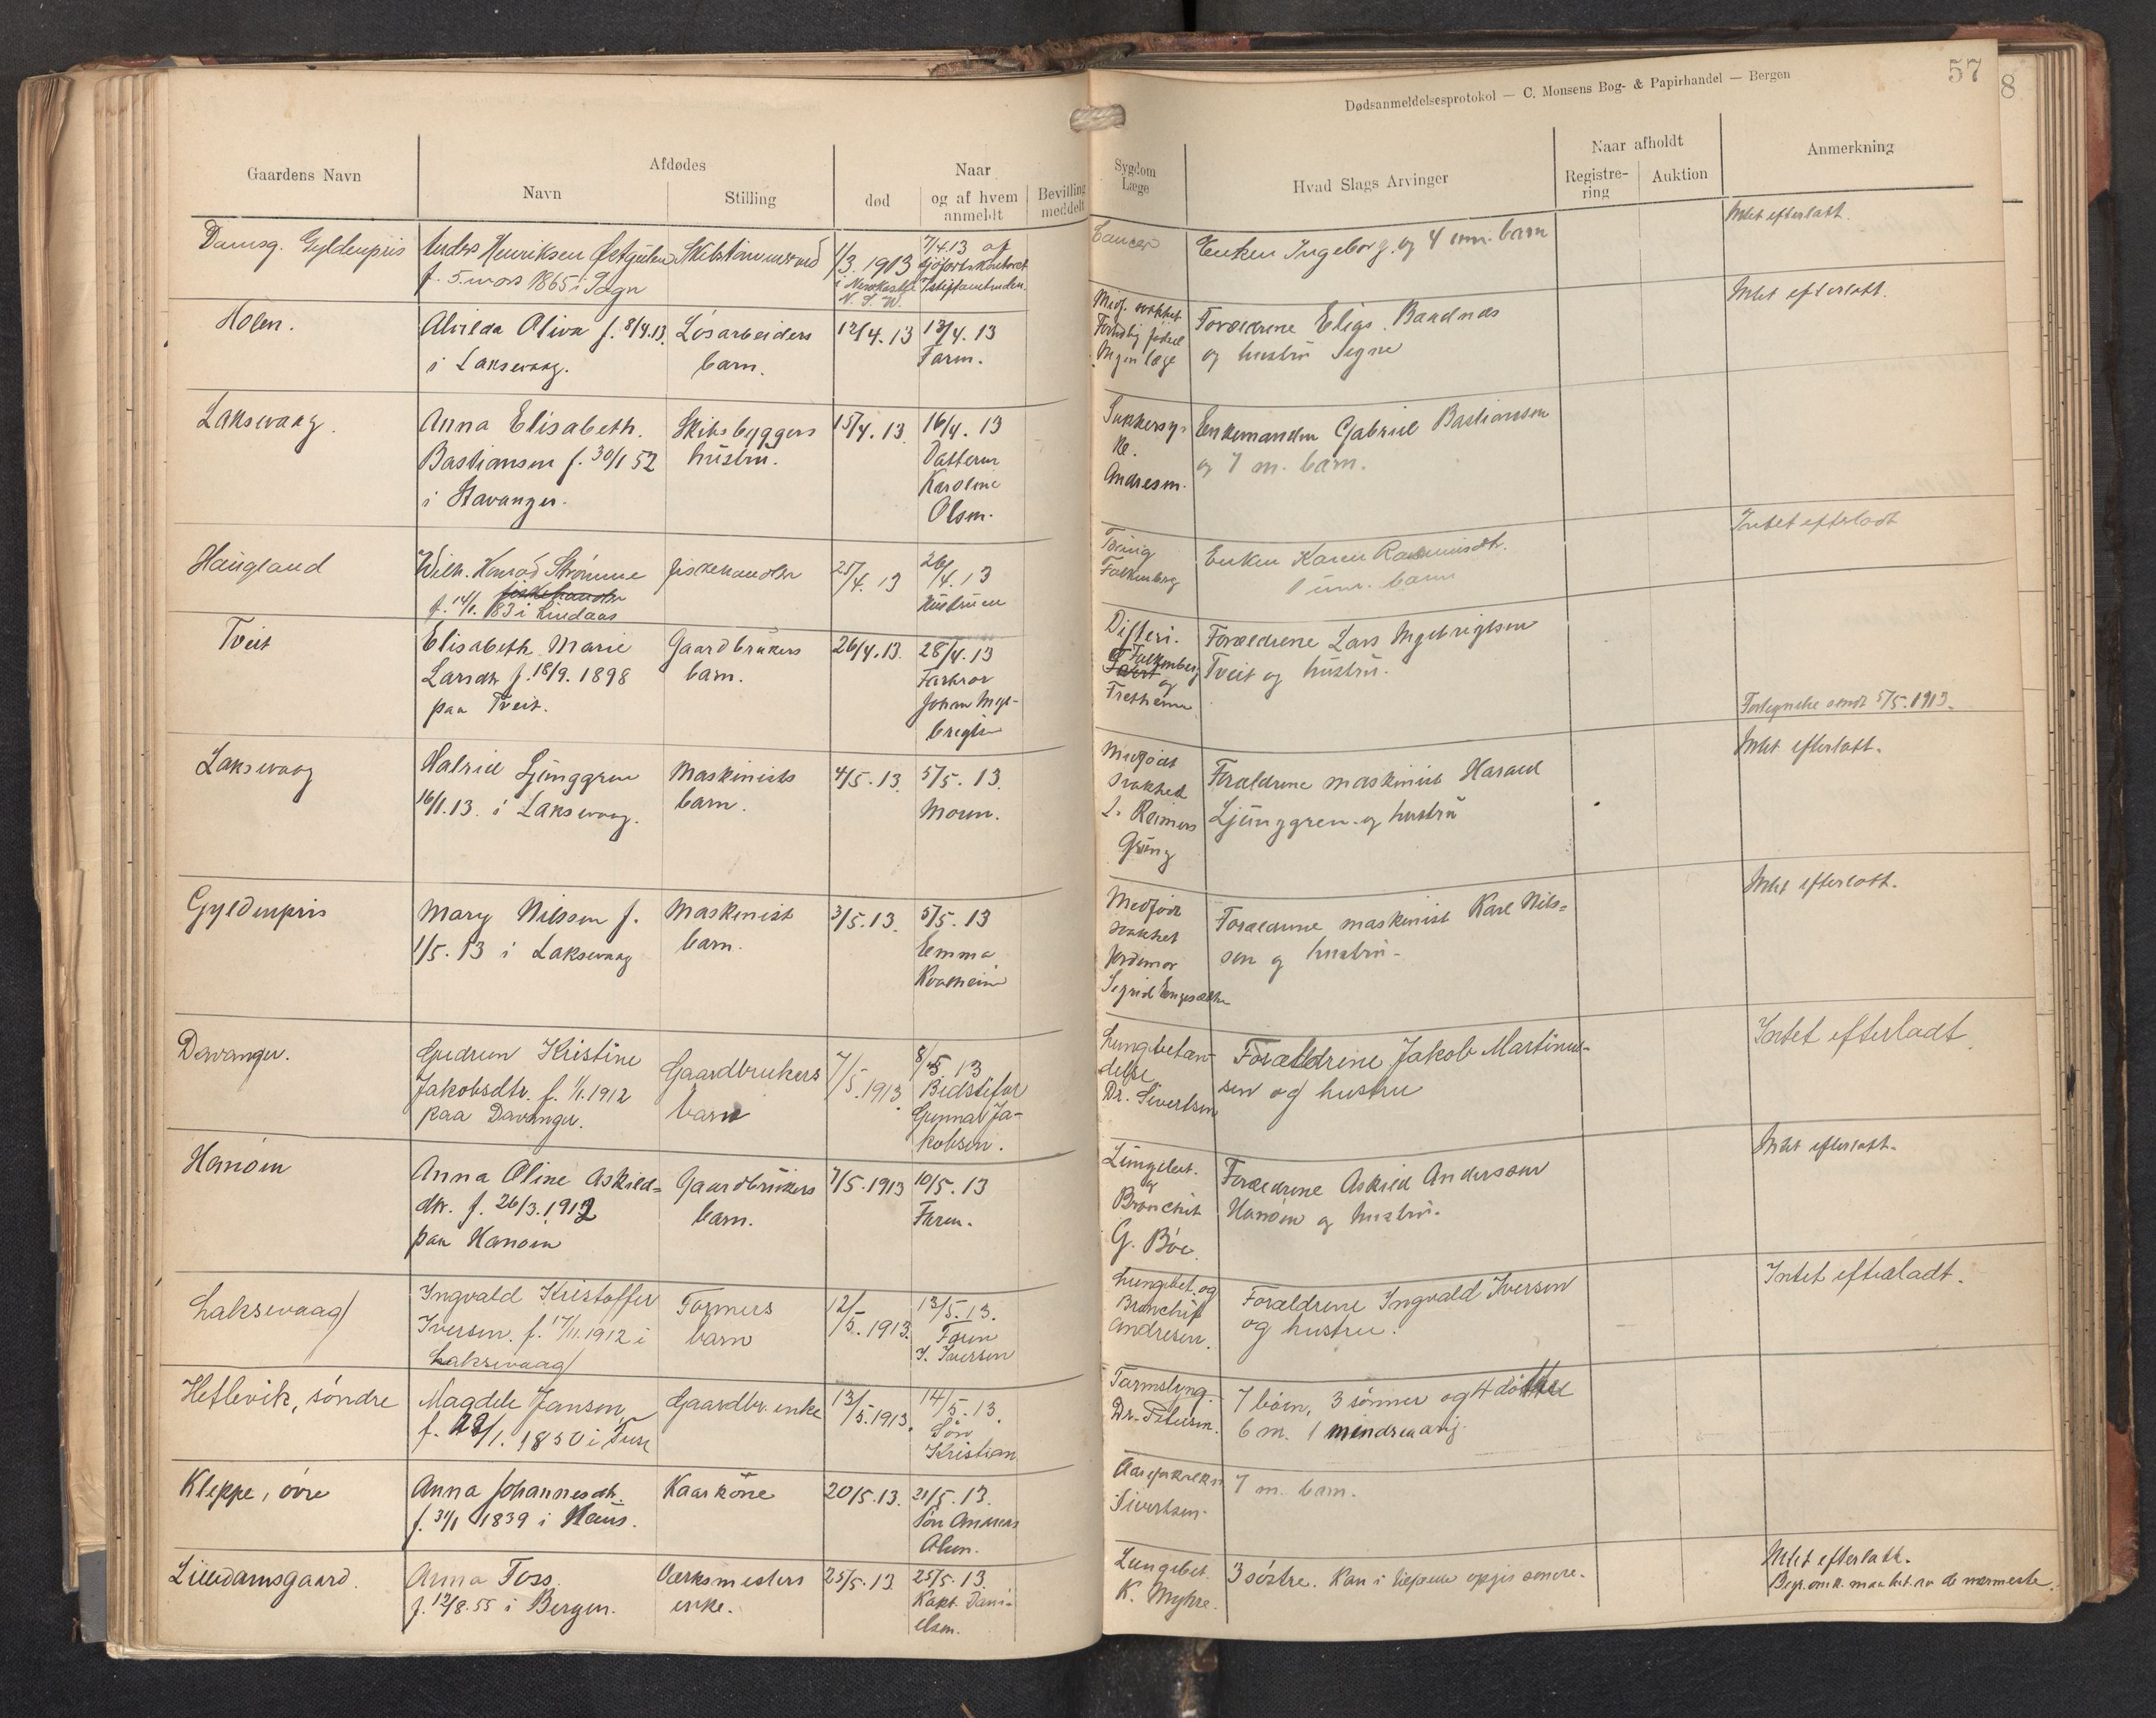 57
8
Dødsanmeldelsesprotokol — C. Monsens Bog- & Papirhandel — Bergen
Gaardens Navn
Afdødes
Navn
Stilling
død
Naar
og af hvem
anmeldt
Bevilling
meddelt
Sygdom
Læge
Hvad Slags Arvinger
Naar afholdt
Registre-
ring
Auktion
Anmerkning
Damsg. Gyldenpris
Anders Henriksen
f. 5. mars 1865 i Sogn
Skibstømmermand
1/3. 1913
i Newkastle
N. S. W.
7/4 13 af
Cancer
Enken Ingeborg. og 4 um. barn
Intet efterlatt.
Holen.
Alvilda Oliva f. 8/4.13.
i Laksevaag.
Løsarbeiders
barn.
12/4. 13
13/4. 13
Faren.
Medf. svakhet
Fortidlig født
Ingen læge
Forældrene Elias Baadnes
og hustru Signe
Intet efterlatt.
Laksevaag.
Anna Elisabeth.
Bastiansen f. 30/1 52
i Stavanger.
Skibsbyggers
hustru.
15/4. 13.
16/4. 13
Datteren
Karoline
Olsen.
Sukkersy-
ke.
Andresen.
Enkemanden Gabriel Bastiansen
og 7 m. barn.
Haugland
Wilh. Konrad Strømme
fiskehandler
i Lindaas
fiskehandler
25/4. 13
26/4. 13
Hustruen
Tæring
Falkenberg
Enken Karen Rasmusdtr.
1 um. barn
Intet efterladt
Tveit
Elisabeth Marie
Larsdtr f. 18/9. 1898
paa Tveit.
Gaardbrukers
barn.
26/4. 13.
28/4. 13
Farbror
Johan Inge-
brigtsen
Difteri.
Falkenberg
og
Fretheim
Forældrene Lars Ingebrigtsen
Tveit og hustru.
Fortegnelse sendt 5/5. 1913.
Laksevaag
Halfrid Ljunggren
16/1. 13. i Laksevaag.
Maskinists
barn.
4/5. 13.
5/5. 13.
Moren.
Medfødt
svakhed
L. Reimers
Grung
Forældrene maskinist Harald
Ljunggren og hustru
Intet efterlatt.
Gyldenpris
Mary Nilssen f.
1/5. 13 i Laksevaag
Maskinist
barn.
3/5. 13.
5/5. 13
Emma
Kvalheim
Medfødt
svakhet
Jordemor
Sigrid Engesæther
Forældrene maskinist Karl Nils=
sen og hustru.
Intet efterlatt.
Davanger.
Gudrun Kristine
Jakobsdtr. f. 1/1. 1912
paa Davanger.
Gaardbrukers
barn
7/5. 1913.
8/5. 13
Bedstefar
Gunnar Ja-
kobsen.
Lungebetæn-
delse
Dr. Sivertsen
Forældrene Jakob Martinus-
sen og hustru
Intet efterladt.
Hanøen
Anna Oline Askild=
dtr. f. 26/3. 1912
paa Hanøen
Gaardbrukers
barn.
7/5. 1913
10/5. 13
Faren.
Lungebet.
og
Bronchit
G. Bøe.
Forældrene Askild Anderssen
Hanøen og hustru.
Intet efterlatt.
Laksevaag
Ingvald Kristoffer
Iversen. f. 17/11. 1912 i
Laksevaag
Formers
barn
12/5. 1913.
13/5. 13.
Faren
I. Iversen
Lungebet. og
Bronchit
Andresen.
Forældrene Ingvald Iversen
og hustru.
Intet efterladt.
Hetlevik, søndre
Magdele Jansen
1850 i Fuse
Gaardbr. enke
13/5. 1913.
14/5. 13.
Søn
Kristian
Tarmslyng.
Dr. Petersen.
7 børn, 3 sønner og 4 døttre
6 m. 1 mindreaarig.
Kleppe, øvre
Anna Johannesdtr.
1839 i Haus.
Kaarkone
20/5. 13.
21/5. 13.
Søn Andreas
Olsen.
Aareforkalkn
Sivertsen.
7 m. barn.
Liendamsgaard.
Anna Foss.
f. 12/8. 55 i Bergen.
Værksmesters
enke.
25/5. 13.
25/5. 13.
Kapt. Dani-
elsen.
Lungebet.
K. Myhre.
3 søstre. Kan i tilfælde opgis senere.
Intet efterlatt.
Begr. omk. maa bet. av de nærmeste.